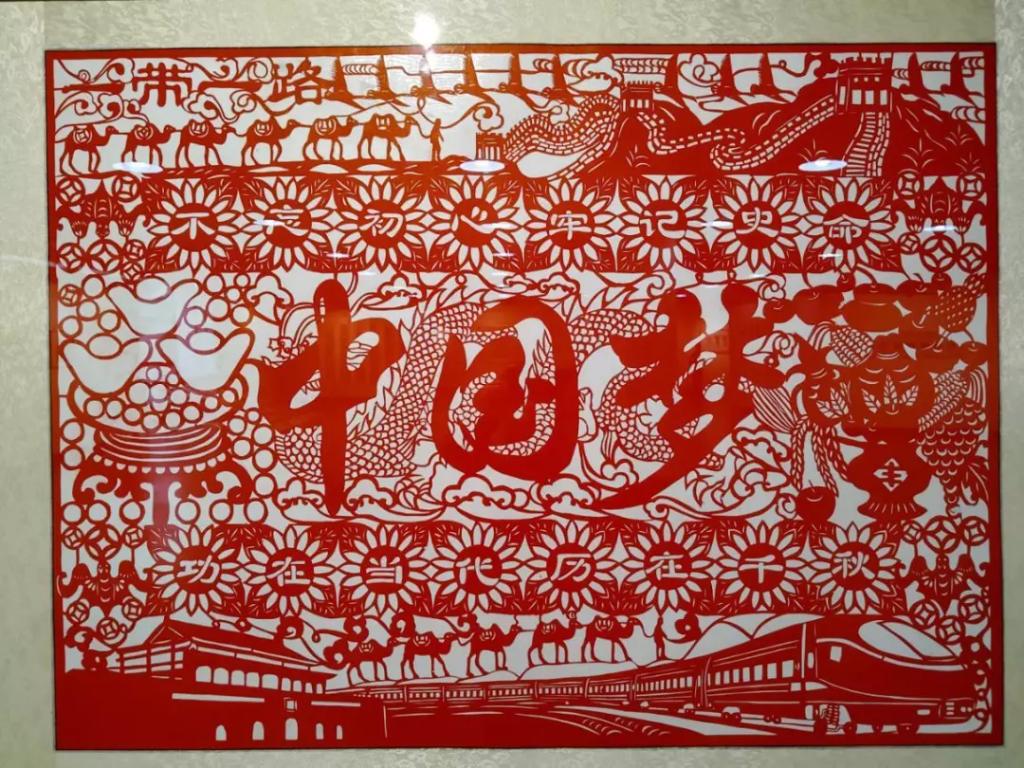 一带一路
不忘初心牢记史命
中国梦
丰
功在当代历在千秋